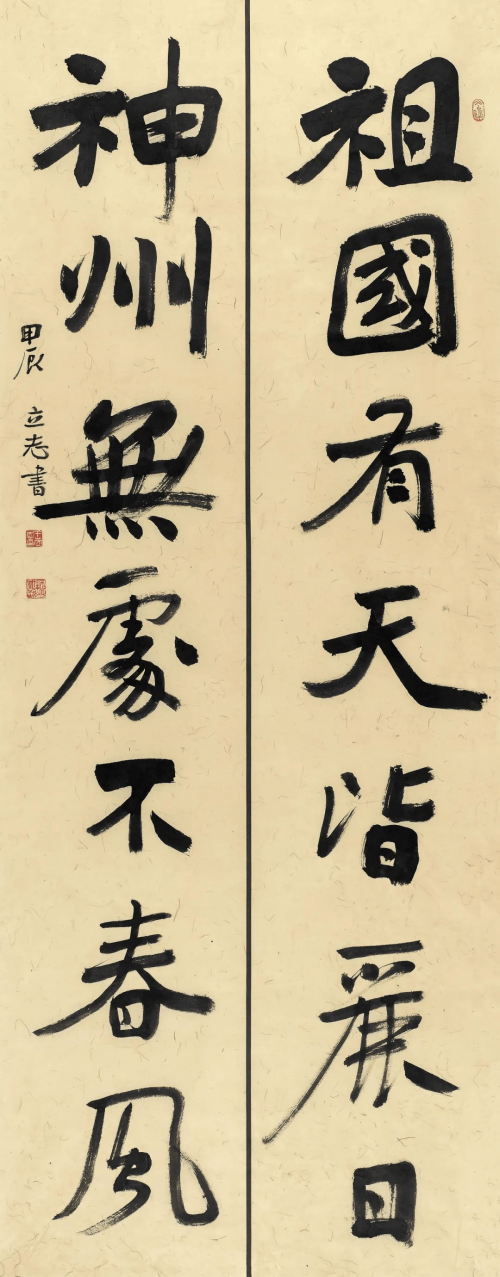 祖國有天皆麗日
神州無處不春風
甲辰 立志書